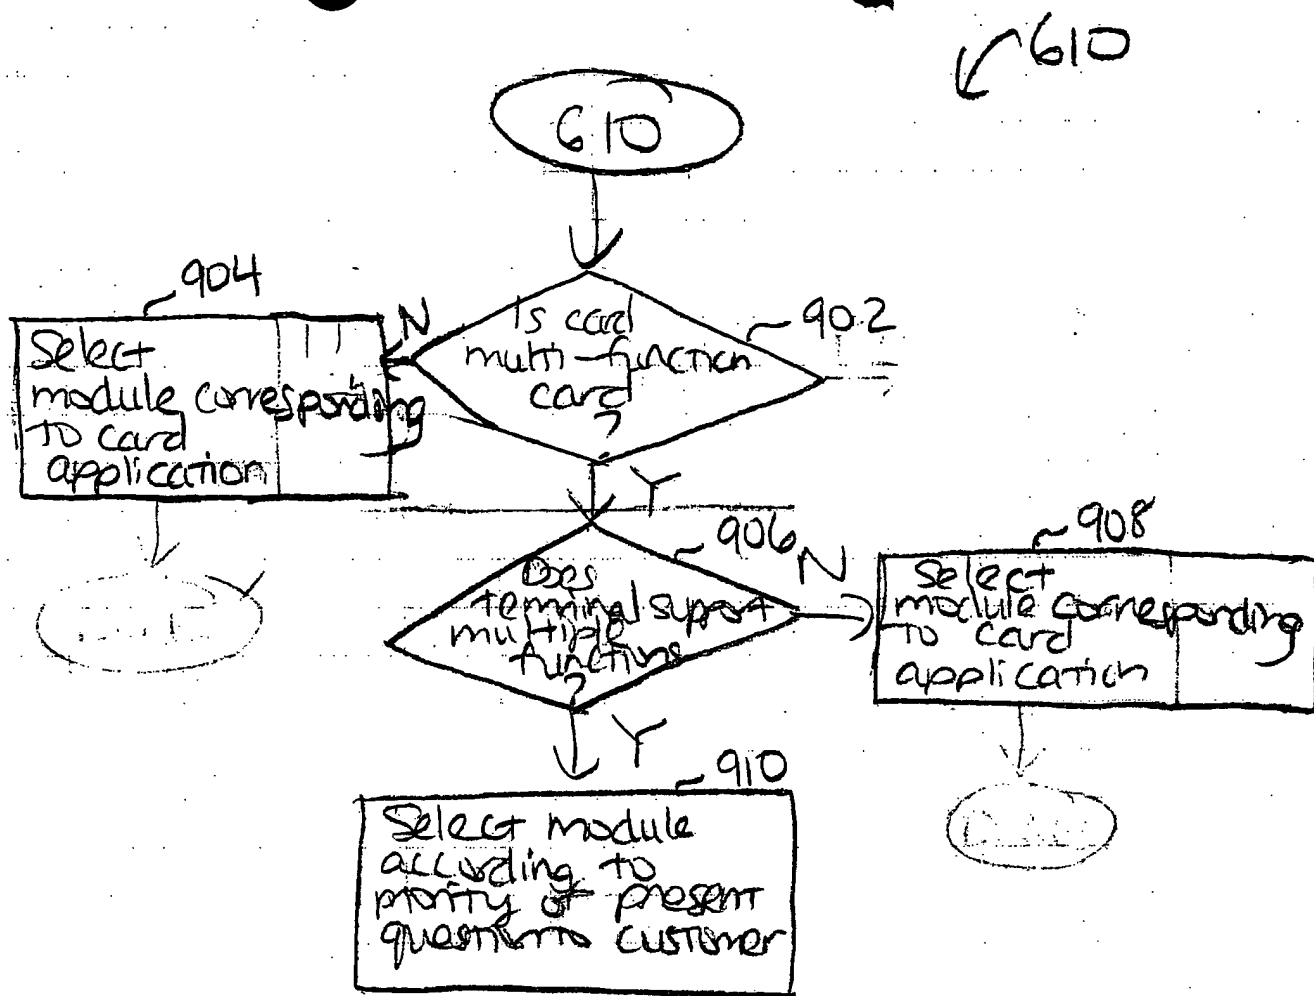 610
610
904
Select
module corresponding
to card
application
N
902
Is card
multi-function
card
?
Y
906
Does
terminal support
multiple
functions
?
N
908
Select
module corresponding
to card
application
Y
910
Select module
according to
priority of present
question to customer